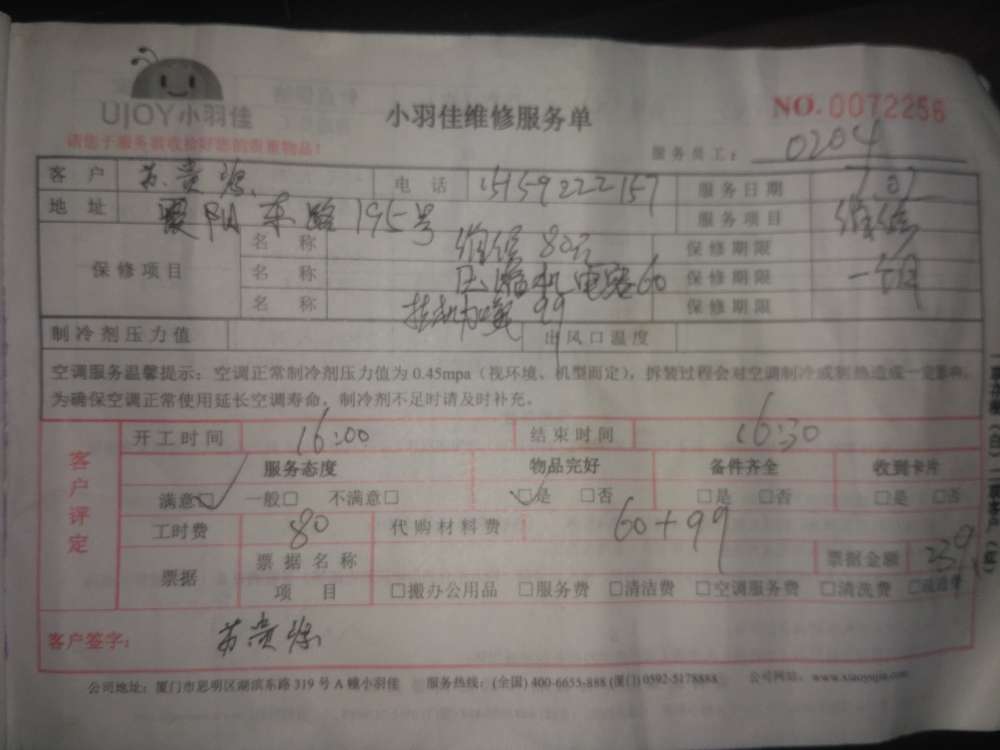 UJOY小羽佳
小羽佳维修服务单
NO. 0072256
请您于服务前收拾好您的贵重物品!
服务员工: 0204
客户 电话 15159222157 服务日期
地址 东路195号 服务项目 维修
保修项目
名称 维修 80元 保修期限
名称 压缩机电容60 保修期限 一个月
名称 挂机加氟 99 保修期限
制冷剂压力值 出风口温度
空调服务温馨提示: 空调正常制冷剂压力值为 0.45mpa (视环境、机型而定), 拆装过程会对空调制冷或制热造成一定影响,
为确保空调正常使用延长空调寿命, 制冷剂不足时请及时补充。
客户评定
开工时间 16:00 结束时间 16:30
服务态度 物品完好 备件齐全 收到卡片
满意☑ 一般□ 不满意□ ☑是 □否 □是 □否 □是 □否
工时费 80 代购材料费 60+99
票据 票据名称 票据金额 239
项目 □搬办公用品 □服务费 □清洁费 □空调服务费 □清洗费
客户签字:
公司地址: 厦门市思明区湖滨东路 319 号 A 幢小羽佳 服务热线: (全国) 400-6655-888 (厦门) 0592-5178888 公司网站: www.xiaoyujia.com